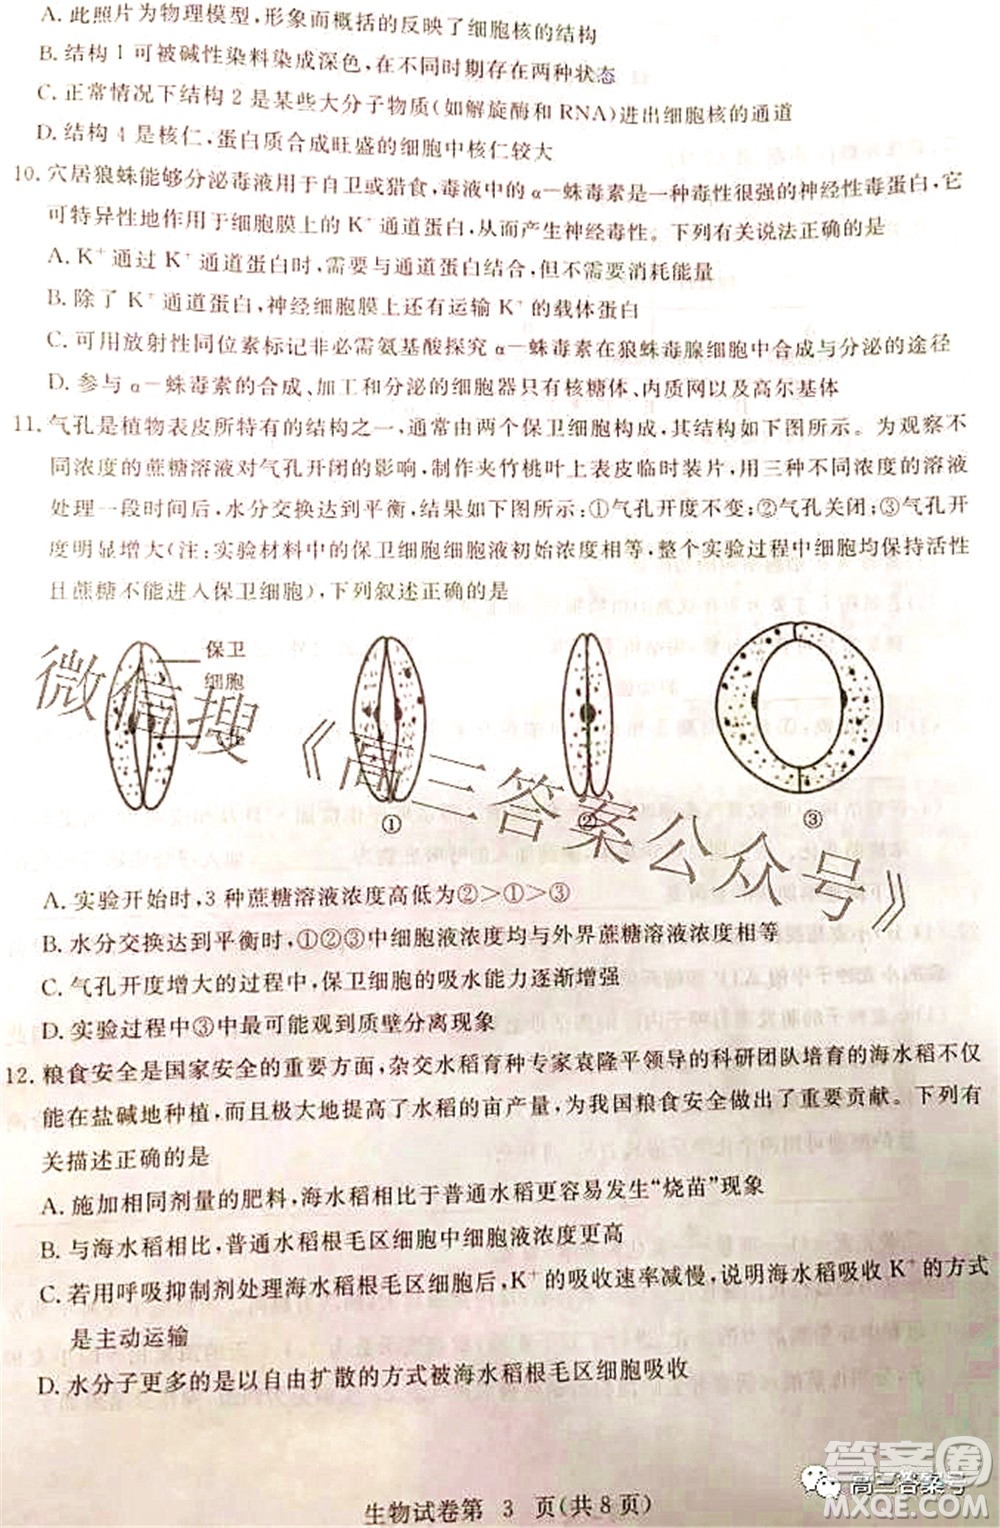 A. 此照片为物理模型,形象而概括的反映了细胞核的结构
B. 结构 1 可被碱性染料染成深色,在不同时期存在两种状态
C. 正常情况下结构 2 是某些大分子物质(如解旋酶和 RNA)进出细胞核的通道
D. 结构 4 是核仁,蛋白质合成旺盛的细胞中核仁较大
10. 穴居狼蛛能够分泌毒液用于自卫或猎食,毒液中的 α-蛛毒素是一种毒性很强的神经性毒蛋白,它
可特异性地作用于细胞膜上的 K⁺ 通道蛋白,从而产生神经毒性。下列有关说法正确的是
A. K⁺ 通过 K⁺ 通道蛋白时,需要与通道蛋白结合,但不需要消耗能量
B. 除了 K⁺ 通道蛋白,神经细胞膜上还有运输 K⁺ 的载体蛋白
C. 可用放射性同位素标记非必需氨基酸探究 α-蛛毒素在狼蛛毒腺细胞中合成与分泌的途径
D. 参与 α-蛛毒素的合成、加工和分泌的细胞器只有核糖体、内质网以及高尔基体
11. 气孔是植物表皮所特有的结构之一,通常由两个保卫细胞构成,其结构如下图所示。为观察不
同浓度的蔗糖溶液对气孔开闭的影响,制作夹竹桃叶上表皮临时装片,用三种不同浓度的溶液
处理一段时间后,水分交换达到平衡,结果如下图所示:①气孔开度不变;②气孔关闭;③气孔开
度明显增大(注:实验材料中的保卫细胞细胞液初始浓度相等,整个实验过程中细胞均保持活性
且蔗糖不能进入保卫细胞),下列叙述正确的是
保卫
细胞
① ② ③
微信搜《高三答案公众号》
A. 实验开始时,3 种蔗糖溶液浓度高低为②>①>③
B. 水分交换达到平衡时,①②③中细胞液浓度均与外界蔗糖溶液浓度相等
C. 气孔开度增大的过程中,保卫细胞的吸水能力逐渐增强
D. 实验过程中③中最可能观到质壁分离现象
12. 粮食安全是国家安全的重要方面,杂交水稻育种专家袁隆平领导的科研团队培育的海水稻不仅
能在盐碱地种植,而且极大地提高了水稻的亩产量,为我国粮食安全做出了重要贡献。下列有
关描述正确的是
A. 施加相同剂量的肥料,海水稻相比于普通水稻更容易发生“烧苗”现象
B. 与海水稻相比,普通水稻根毛区细胞中细胞液浓度更高
C. 若用呼吸抑制剂处理海水稻根毛区细胞后,K⁺ 的吸收速率减慢,说明海水稻吸收 K⁺ 的方式
是主动运输
D. 水分子更多的是以自由扩散的方式被海水稻根毛区细胞吸收
生物试卷第 3 页(共 8 页)
高三答案号
答案圈
MXQE.COM